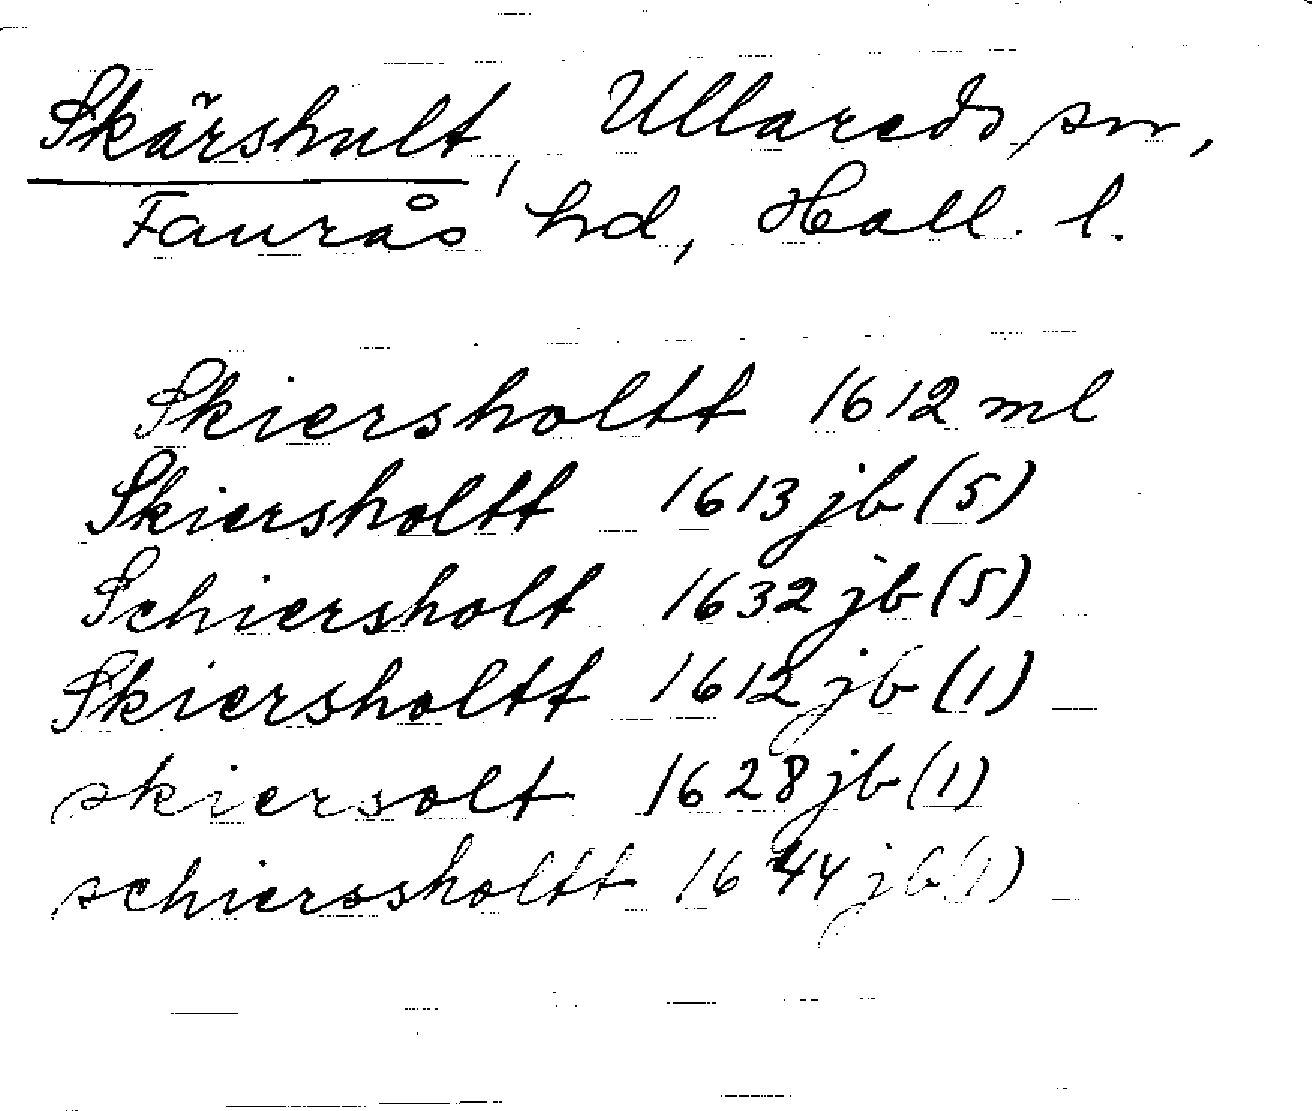 Skärshult, Ullareds sn,
Faurås hd, Hall. l.
Skiersholtt 1612 ml
Skiersholtt 1613 jb (5)
Schiersholt 1632 jb (5)
Skiersholtt 1612 jb (1)
skiersolt 1628 jb (1)
schierssholtt 1644 jb (1)